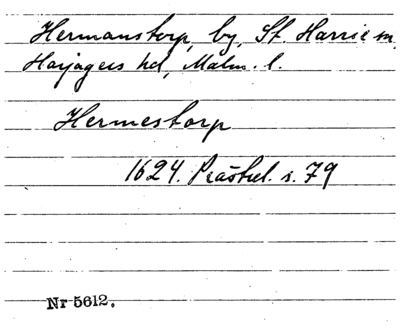 Hermanstorp, by, St. Harrie sn,
Harjagers hd, Malm. l.
Hermestorp
1624. Prästrel. s. 79
Nr 5612.